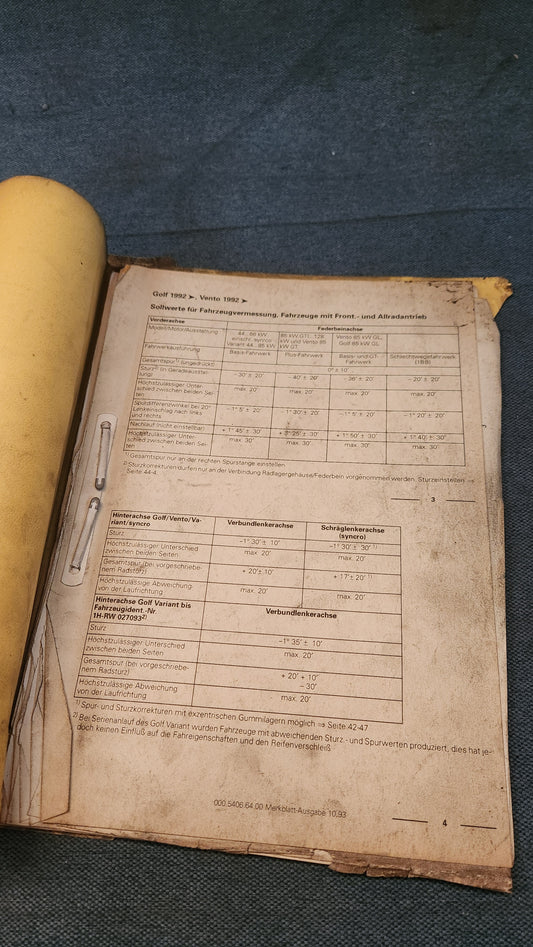 Golf 1992 ➤, Vento 1992 ➤
Sollwerte für Fahrzeugvermessung, Fahrzeuge mit Front.- und Allradantrieb
Vorderachse Federbeinachse
Modell/Motor/Ausstattung 44...66 kW einschl. syncro Variant 44...85 kW 85 kW GTI, 128 kW und Vento 85 kW GT Vento 65 kW GL, Golf 85 kW GL
Fahrwerkausführung Basis-Fahrwerk Plus-Fahrwerk Basis- und GT-Fahrwerk Schlechtwegefahrwerk (1BB)
Gesamtspur¹⁾ (ungedrückt) 0° ± 10'
Sturz²⁾ (in Geradeausstellung) -30' ± 20' -40' ± 20' 36' ± 20' -20' ± 20'
Höchstzulässiger Unterschied zwischen beiden Seiten max. 20' max. 20' max. 20' max. 20'
Spurdifferenzwinkel bei 20° Lenkeinschlag nach links und rechts -1° 5' ± 20' -1° 30' ± 20' -1° 5' ± 20' -1° 20' ± 20'
Nachlauf (nicht einstellbar) + 1° 45' ± 30' + 3° 25' ± 30' + 1° 50' ± 30' + 1° 40' ± 30'
Höchstzulässiger Unterschied zwischen beiden Seiten max. 30' max. 30' max. 30' max. 30'
¹⁾ Gesamtspur nur an der rechten Spurstange einstellen.
²⁾ Sturzkorrekturen dürfen nur an der Verbindung Radlagergehäuse/Federbein vorgenommen werden. Sturzeinstellen ⇒
Seite 44-4.
3
Hinterachse Golf/Vento/Variant/syncro Verbundlenkerachse Schräglenkerachse (syncro)
Sturz -1° 30' ± 10' -1° 30' ± 30' ¹⁾
Höchstzulässiger Unterschied zwischen beiden Seiten max. 20' max. 20'
Gesamtspur (bei vorgeschriebenem Radsturz) + 20' ± 10' + 17' ± 20' ¹⁾
Höchstzulässige Abweichung von der Laufrichtung max. 20' max. 20'
Hinterachse Golf Variant bis Fahrzeugident.-Nr. 1H-RW 027093²⁾ Verbundlenkerachse
Sturz -1° 35' ± 10'
Höchstzulässiger Unterschied zwischen beiden Seiten max. 20'
Gesamtspur (bei vorgeschriebenem Radsturz) + 20' + 10' - 30'
Höchstzulässige Abweichung von der Laufrichtung max. 20'
¹⁾ Spur- und Sturzkorrekturen mit exzentrischen Gummilagern möglich ⇒ Seite 42-47
²⁾ Bei Serienanlauf des Golf Variant wurden Fahrzeuge mit abweichenden Sturz.- und Spurwerten produziert, dies hat je-
doch keinen Einfluß auf die Fahreigenschaften und den Reifenverschleiß
000.5406.64.00 Merkblatt-Ausgabe 10.93
4